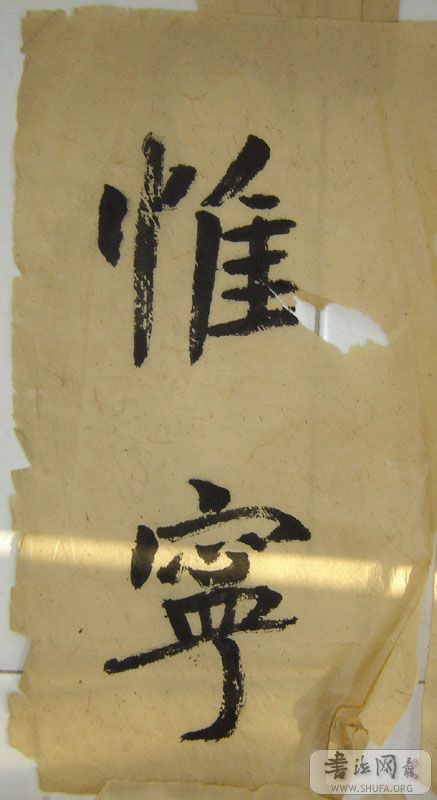 惟寧
书法网
WWW.SHUFA.ORG